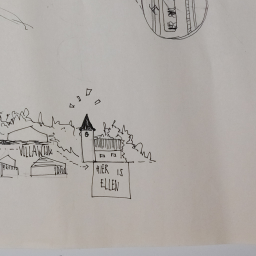 VILLAWUX
HIER IS
ELLEN